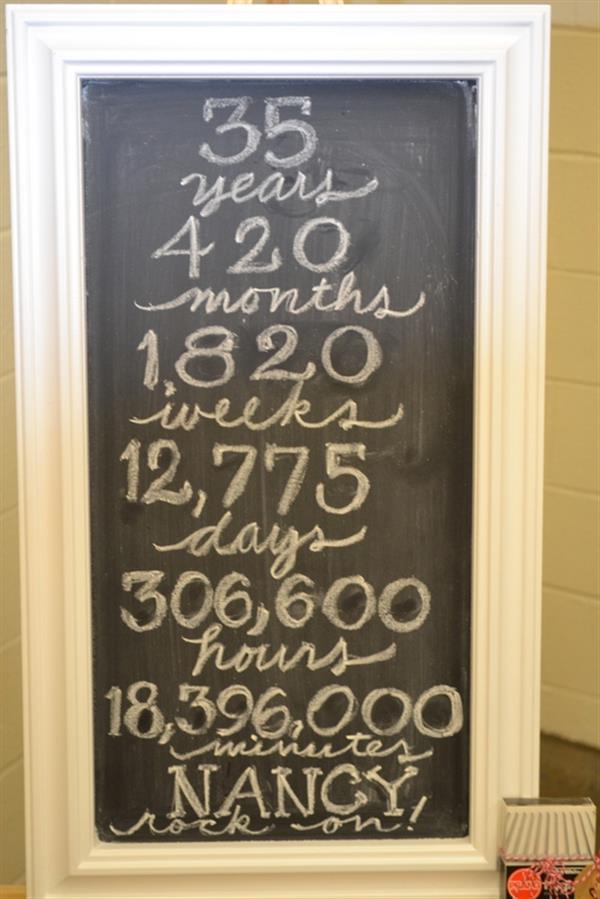 35
years
420
months
1,820
weeks
12,775
days
306,600
hours
18,396,000
minutes
NANCY
rock on!